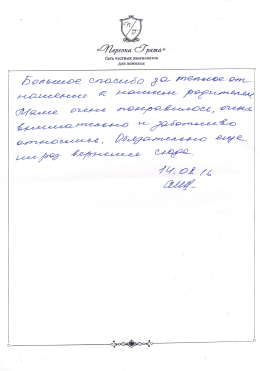 «Персона Грата»
Сеть частных пансионатов
для пожилых
Большое спасибо за теплое от
ношение к нашим родителям
Маме очень понравилось, очень
внимательно и заботливо
относились. Обязательно еще
раз вернемся сюда.
14.08.16